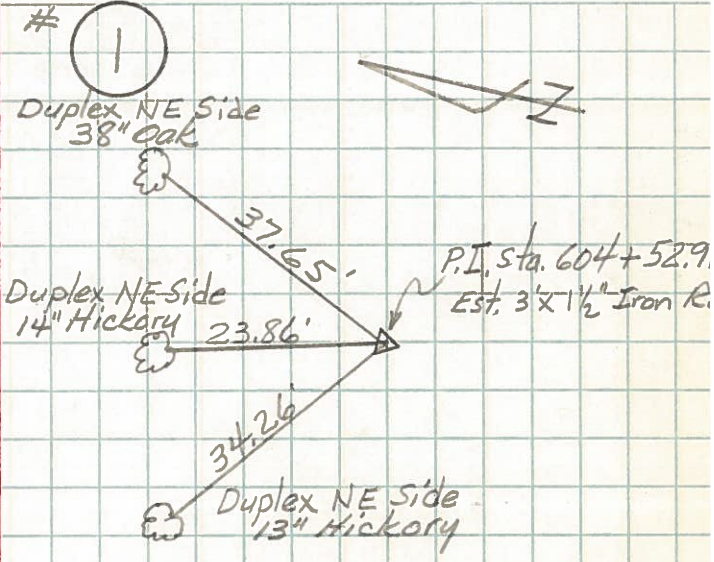 # 1
Duplex NE Side
38" Oak
37.65'
P.I. Sta. 604+52.9
Est. 3'x1½" Iron
Duplex NE Side
14" Hickory
23.86'
34.26'
Duplex NE Side
13" Hickory
N